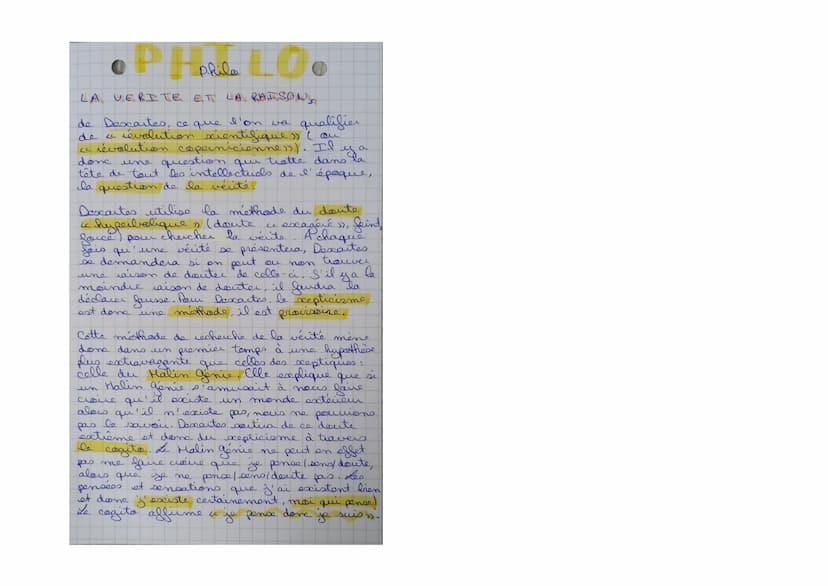 PHILO
Philo
LA VERITE ET LA RAISON,
de Descartes, ce que l'on va qualifier
de « révolution scientifique » ( ou
« révolution copernicienne »). Il y a
donc une question qui trotte dans la
tête de tout les intellectuels de l'époque,
la question de la vérité
Descartes utilise la méthode du doute
« hyperbolique » (doute « exagéré », feint,
forcé) pour chercher la vérité. A chaque
fois qu'une vérité se présentera, Descartes
se demandera si on peut ou non trouver
une raison de douter de celle-ci. S'il y a la
moindre raison de douter, il faudra la
déclarer fausse. Pour Descartes, le scepticisme
est donc une méthode, il est provisoire.
Cette méthode de recherche de la vérité mène
donc dans un premier temps à une hypothèse
plus extravagante que celles des sceptiques :
celle du Malin Génie. Elle explique que si
un Malin Génie s'amusait à nous faire
croire qu'il existe un monde extérieur
alors qu'il n'existe pas, nous ne pourrions
pas le savoir. Descartes sortira de ce doute
extrême et donc du scepticisme à travers
le cogito. Le Malin Génie ne peut en effet
pas me faire croire que je pense/sens/doute,
alors que je ne pense/sens/doute pas. Les
pensées et sensations que j'ai existent bien
et donc j'existe certainement, moi qui pense!
Le cogito affirme « je pense donc je suis ».